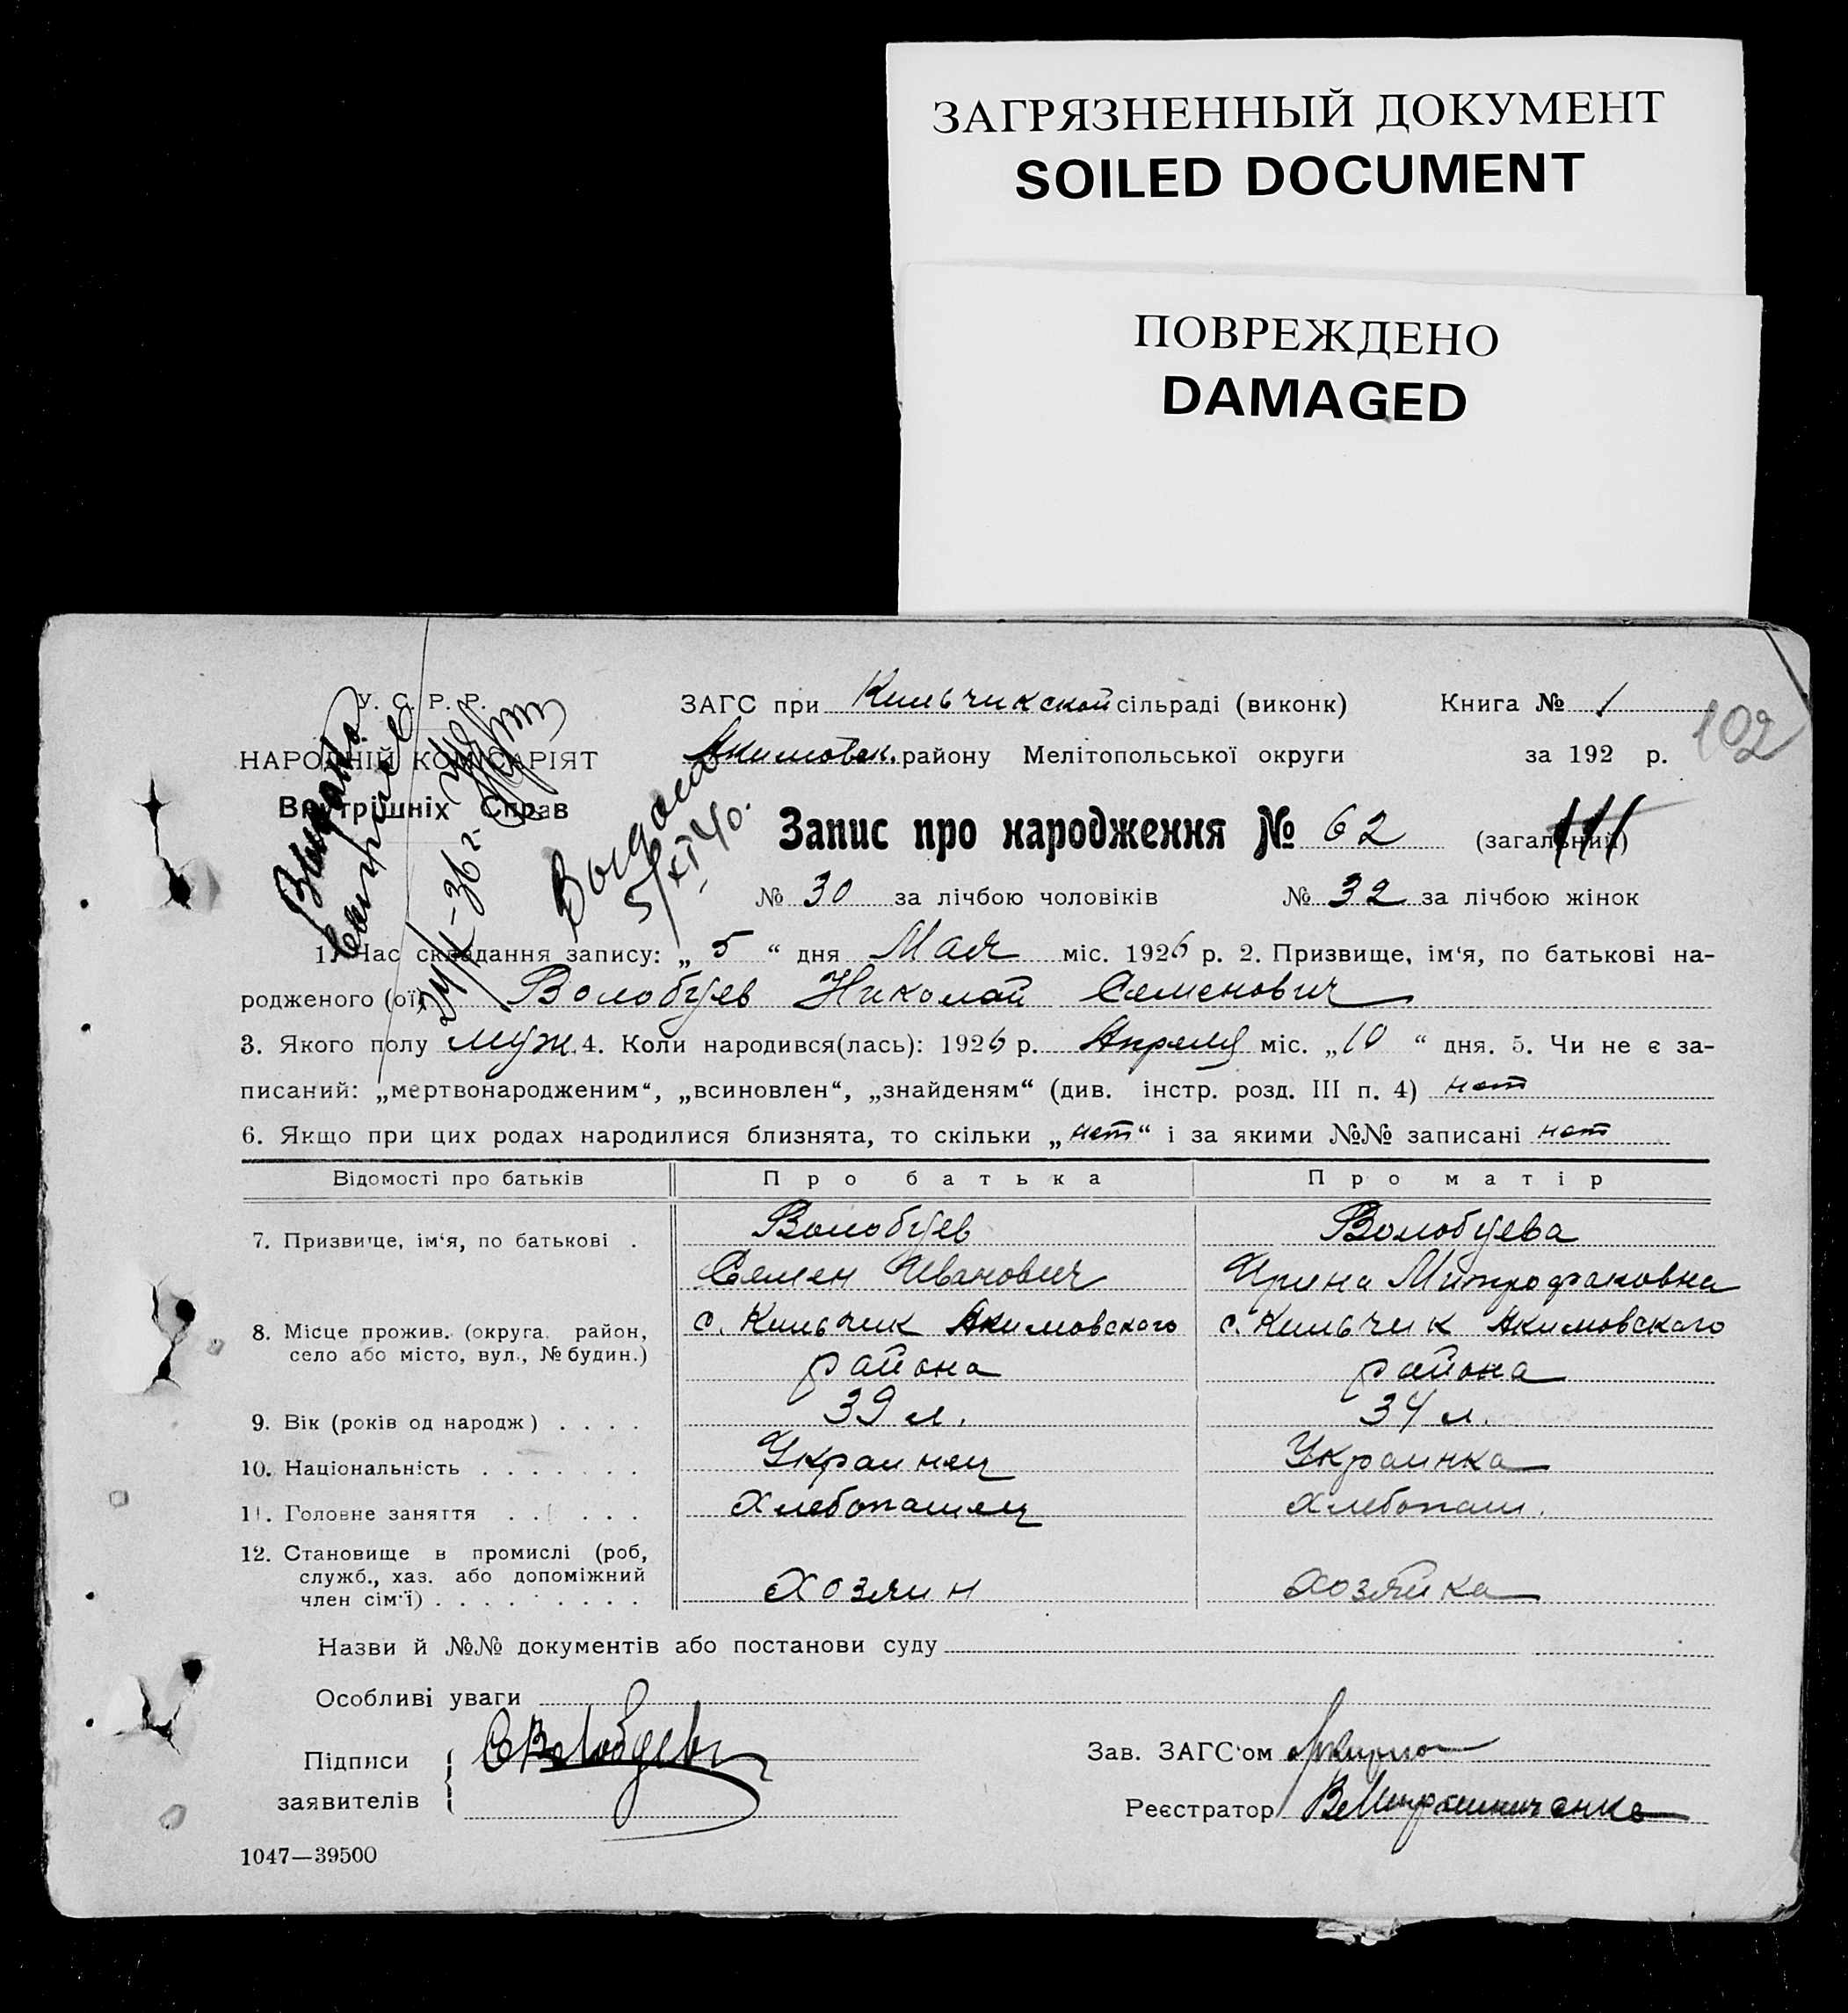 ЗАГРЯЗНЕННЫЙ ДОКУМЕНТ
SOILED DOCUMENT
ПОВРЕЖДЕНО
DAMAGED
У. С. Р. Р.
НАРОДНІЙ КОМІСАРІЯТ
Внутрішніх Справ
ЗАГС при Кильчикской сільраді (виконк) Книга № 1
102
Акимовск. району Мелітопольської округи за 192 р.
Выдано
Выдана
5/XI 40.
Запис про народження № 62 (загальний)
№ 30 за лічбою чоловіків № 32 за лічбою жінок
1. Час складання запису: „ 5 “ дня Мая міс. 1926 р. 2. Призвище, ім‘я, по батькові на-
родженого (ої) Волобуев Николай Семенович
3. Якого полу муж. 4. Коли народився(лась): 1926 р. Апреля міс. „10 “ дня. 5. Чи не є за-
писаний: „мертвонародженим“, „всиновлен“, „знайденям“ (див. інстр. розд. III п. 4) нет
6. Якщо при цих родах народилися близнята, то скільки „нет“ і за якими №№ записані нет
Відомості про батьків Про батька Про матір
7. Призвище, ім‘я, по батькові . Волобуев Волобуева
Семен Иванович Ирина Митрофановна
8. Місце прожив. (округа, район, село або місто, вул., № будин.) с. Кильчик Акимовского с. Кильчик Акимовского
района района
9. Вік (років од народж) . . . . 39 л. 34 л.
10. Національність . . . . . . . Украинец Украинка
11. Головне заняття . . . . . Хлебопашец Хлебопаш.
12. Становище в промислі (роб,
служб., хаз. або допоміжний
член сім‘ї) . . . . . . . . . Хозяин Хозяйка
Назви й №№ документів або постанови суду
Особливі уваги
Підписи
заявителів
СВолобуев
Зав. ЗАГС‘ом
Реєстратор
1047—39500